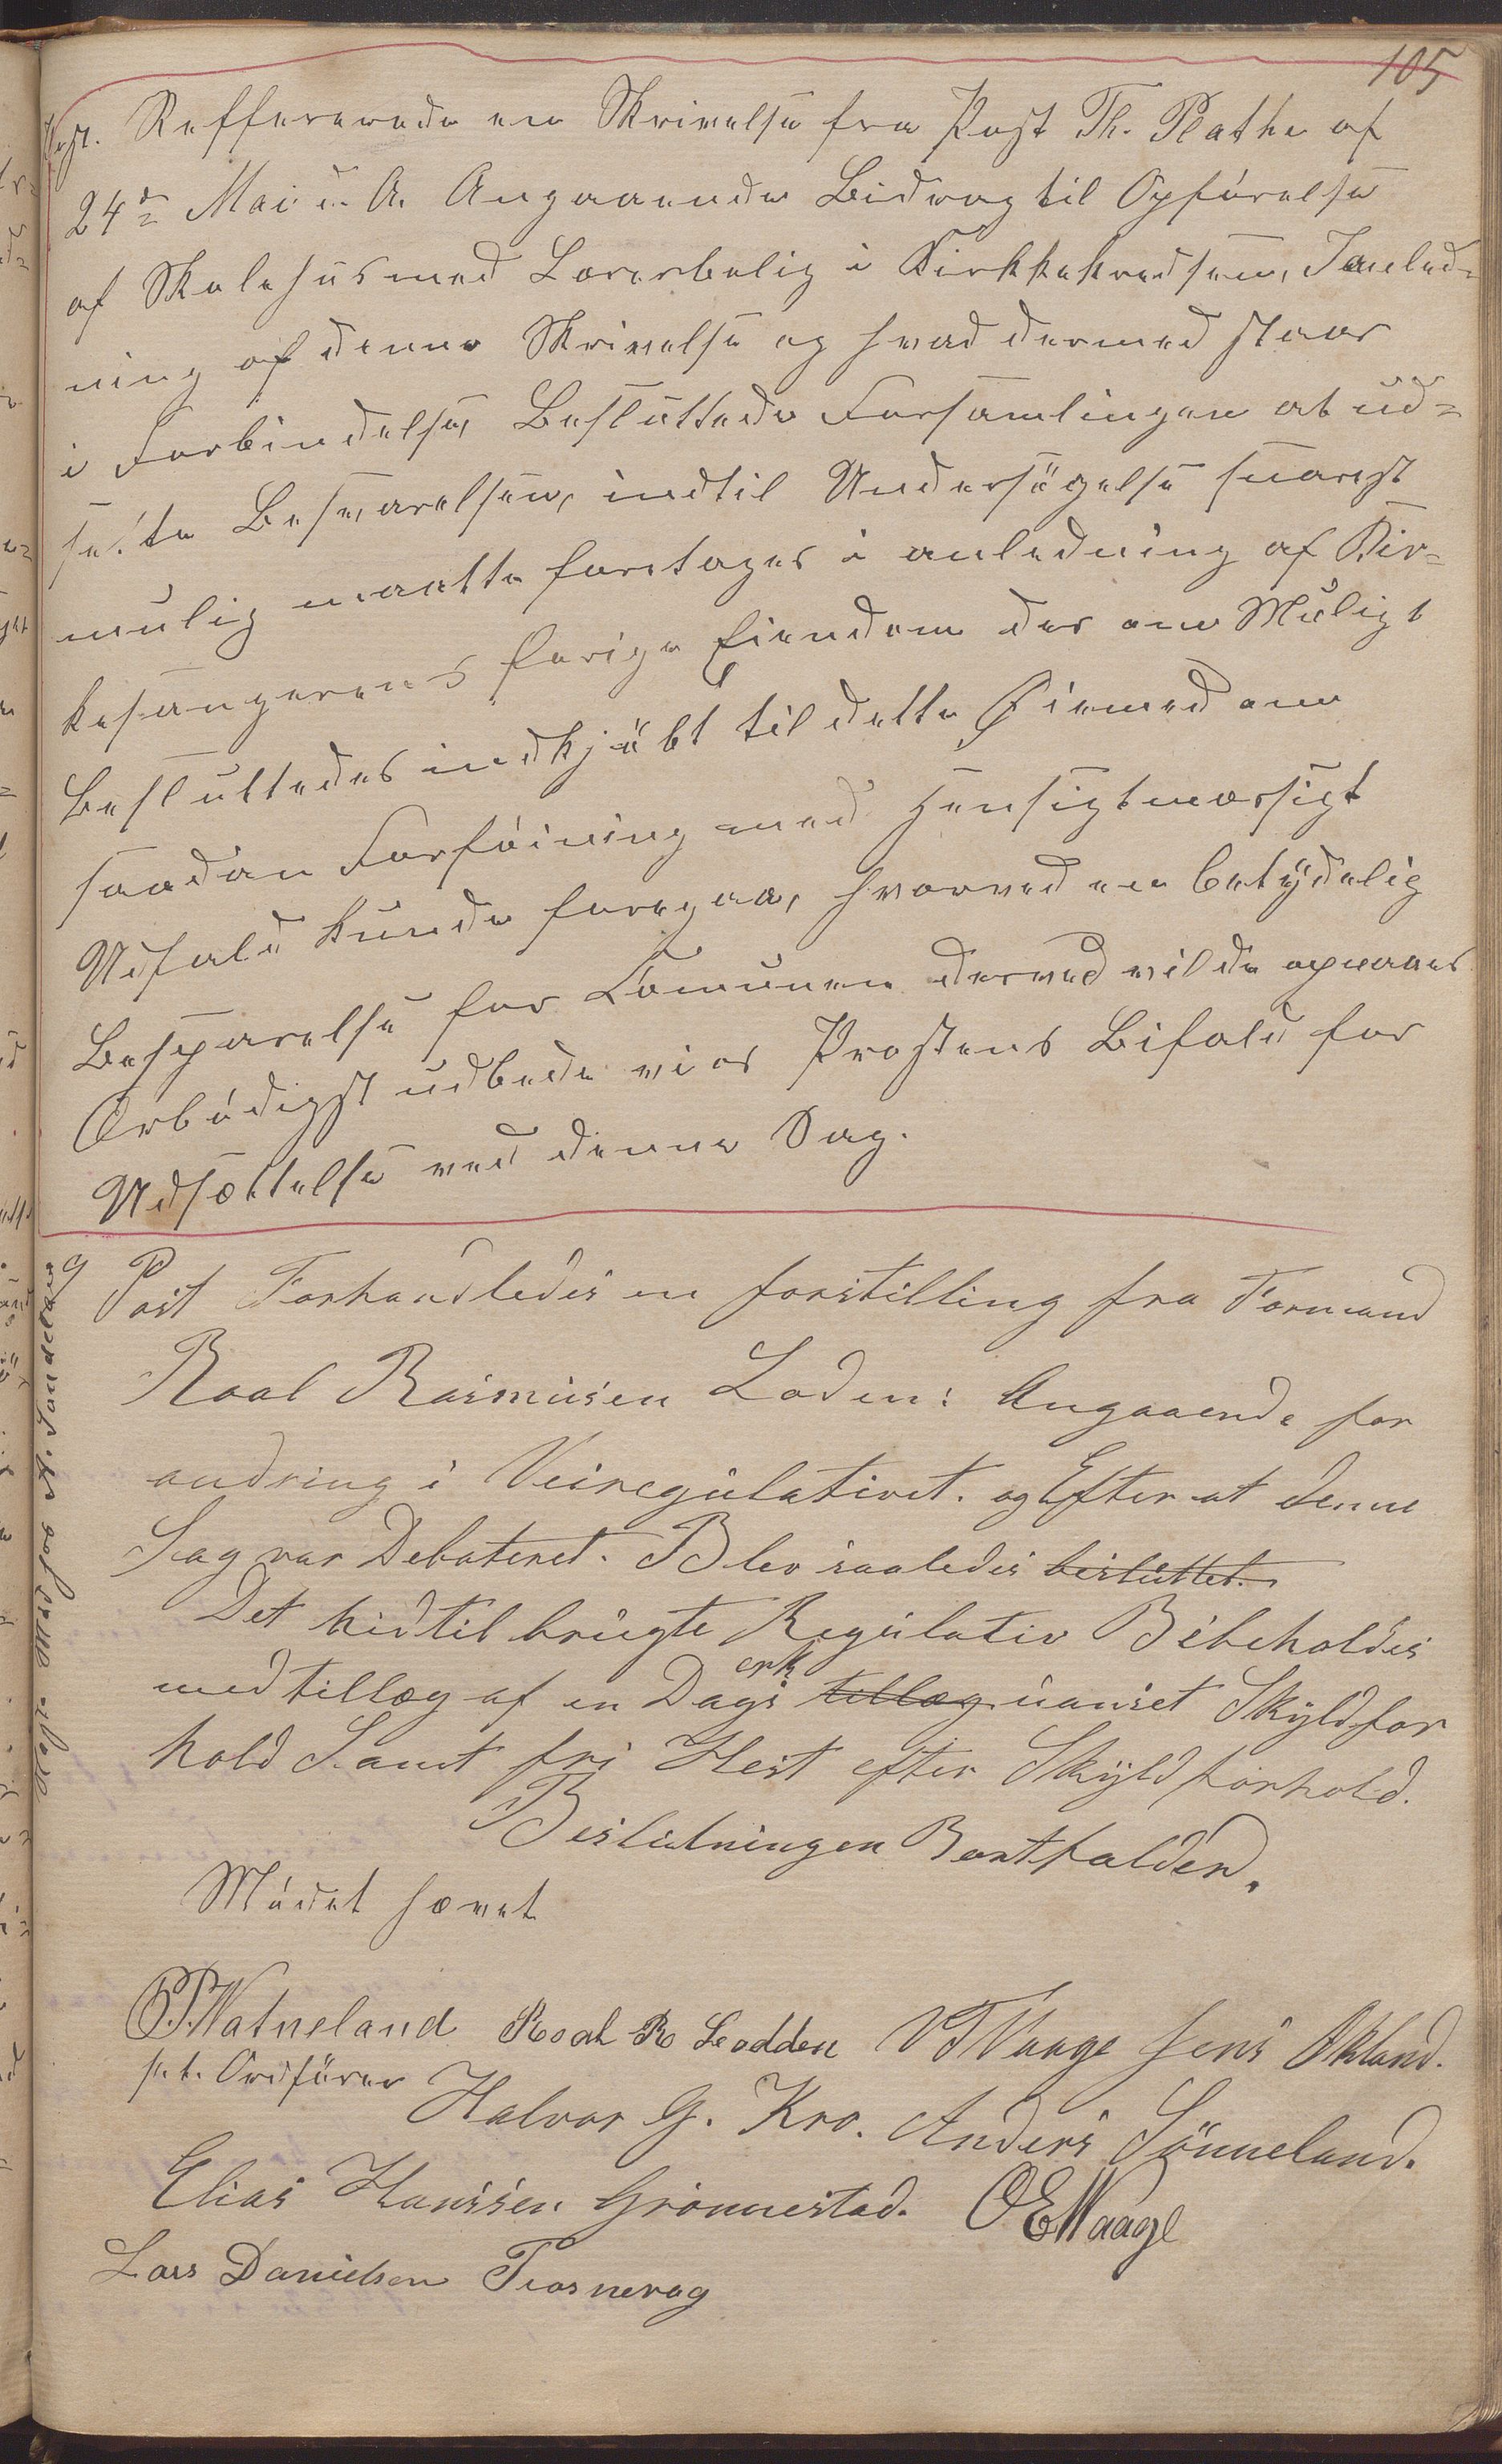 105
Post. Reffererede en Skrivelse fra Post Th. Plathe af
24de Mai d. A. Angaaende Bidrag til Opførelse
af Skolehus med Lærerbolig i Kirkkekredsen, I anled-
ning af denne Skrivelse og hvad dermed staar
i Forbindelse, Besluttede Forsamlingen at ud-
sette Besvarelsen, indtil Undersøgelse snarest
mulig maatte foretages i anledning af Kir-
kesangerens forige Eiendom der om Muligt
besluttedes indkjøbt til dette Øiemed om
saadan Forføining med Hensigtmæssigt
Udfald kunde foregaa, hvorved en betydelig
Besparelse for Comunen derved vilde opnaaes
Ærbødigst udbede vi os Prostens Bifald for
Udsættelse ved denne Sag.
9 Post Forhandledes en forstilling fra Formand
Roal Rasmusen Loden: Angaaende for
andring i Veiregulativet. og Efter at denne
Sag var Debateret. Blev saaledes besluttet.
Det hidtil brugte Regulativ Bibeholdes
erk
med tillæg af en Dags tillæg uanset Skyldfor
hold Samt fri Hest efter Skyldforhold.
Beslutningen Bortfalder.
Mødet hævet
PWatneland Roal R Lodden VTVaage Jens Økland.
s. t. Ordfører
Halvor G. Kro. Anders Sønneland.
Elias Hanssen Grønnestad. OEWaage
Lars Danielsen Trosnevag